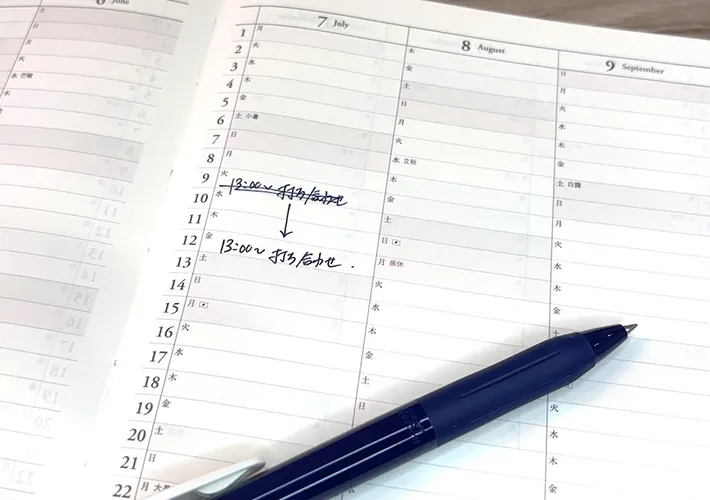 6 June
7 July
8 August
9 September
1 月
2 火
3 水
4 木
5 金
6 土 小暑
7 日
8 月
9 火
13:00〜 打ち合わせ
10 水
11 木
12 金
13:00〜 打ち合わせ.
13 土
14 日
15 月
16 火
17 水
18 木
19 金
20 土
21 日
22 月
木
金
土
日
月
火
水 立秋
木
金
土
日
月 振休
火
水
木
金
土
日
日
月
火
水
木
金
土 白露
日
月
火
水
木
金
土
火
水
木
金
土
日
月
火
水 芒種
木